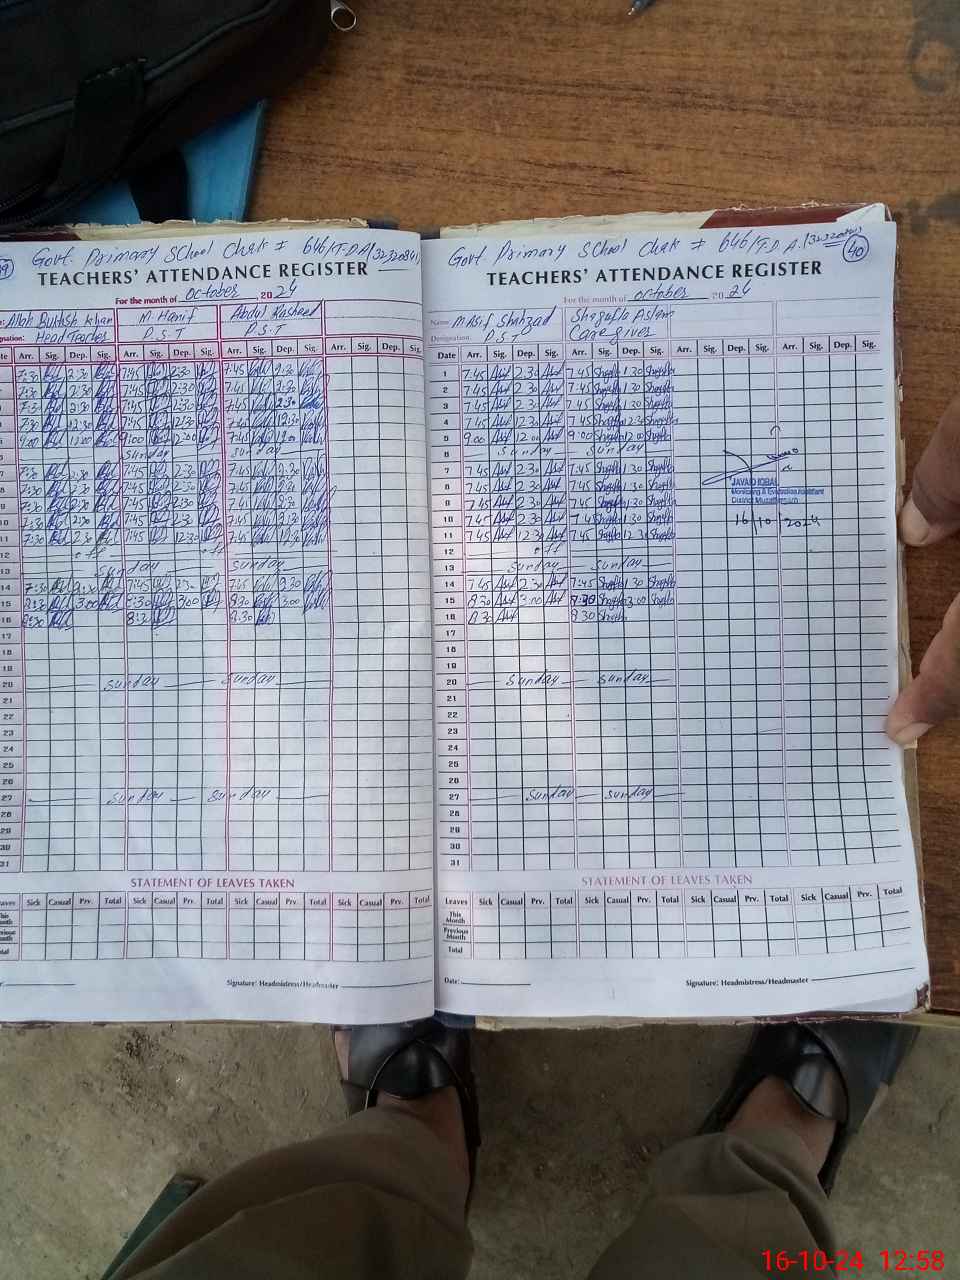 39
Govt. Primary School Chak # 646/T.D.A (32320841)
TEACHERS' ATTENDANCE REGISTER
For the month of October 2024
Allah Bukhsh Khan M. Hanif Abdul Rasheed
Head Teacher P.S.T P.S.T
Arr. Sig. Dep. Sig. Arr. Sig. Dep. Sig. Arr. Sig. Dep. Sig. Arr. Sig. Dep. Sig.
7:30 2:30 7:45 2:30 7:45 2:30
7:30 2:30 7:45 2:30 7:45 2:30
7:30 2:30 7:45 2:30 7:45 2:30
7:30 12:30 7:45 12:30 7:45 12:30
9:00 12:00 9:00 12:00 7:45 12:00
Sunday Sunday
7 7:30 2:30 7:45 2:30 7:45 2:30
8 7:30 2:30 7:45 2:30 7:45 2:30
9 7:30 2:30 7:45 2:30 7:45 2:30
10 7:30 2:30 7:45 2:30 7:45 2:30
11 7:30 7:45 12:30 7:45 12:30
12 off off
13 Sunday Sunday
14 7:30 2:30 7:45 2:30 7:45 2:30
15 8:30 3:00 8:30 3:00 8:30 3:00
16 8:30 8:30 8:30
17
18
19
20 Sunday Sunday
21
22
23
24
25
26
27 Sunday Sunday
28
29
30
31
STATEMENT OF LEAVES TAKEN
Sick Casual Prv. Total Sick Casual Prv. Total Sick Casual Prv. Total Sick Casual Prv. Total
Signature: Headmistress/Headmaster
40
Govt. Primary School Chak # 646/T.D.A. (32320841)
TEACHERS' ATTENDANCE REGISTER
For the month of October 2024
Name: M Asif Shahzad Shagufta Aslam
Designation: P.S.T Care giver
Date Arr. Sig. Dep. Sig. Arr. Sig. Dep. Sig. Arr. Sig. Dep. Sig. Arr. Sig. Dep. Sig.
1 7:45 Asif 2:30 Asif 7:45 Shagufta 1:30 Shagufta
2 7:45 Asif 2:30 Asif 7:45 Shagufta 1:30 Shagufta
3 7:45 Asif 2:30 Asif 7:45 Shagufta 1:30 Shagufta
4 7:45 Asif 12:30 Asif 7:45 Shagufta 12:30 Shagufta
5 9:00 Asif 12:00 Asif 9:00 Shagufta 12:00 Shagufta
6 Sunday Sunday
7 7:45 Asif 2:30 Asif 7:45 Shagufta 1:30 Shagufta
8 7:45 Asif 2:30 Asif 7:45 Shagufta 1:30 Shagufta
9 7:45 Asif 2:30 Asif 7:45 Shagufta 1:30 Shagufta
10 7:45 Asif 2:30 Asif 7:45 Shagufta 1:30 Shagufta
11 7:45 Asif 12:30 Asif 7:45 Shagufta 12:30 Shagufta
12 off
13 Sunday Sunday
14 7:45 Asif 2:30 Asif 7:45 Shagufta 1:30 Shagufta
15 8:30 Asif 3:00 Asif 8:30 Shagufta 3:00 Shagufta
16 8:30 Asif 8:30 Shagufta
17
18
19
20 Sunday Sunday
21
22
23
24
25
26
27 Sunday Sunday
28
29
30
31
JAVAID IQBAL
Monitoring & Evaluation Assistant
District Muzaffargarh
16/10/2024
STATEMENT OF LEAVES TAKEN
Leaves Sick Casual Prv. Total Sick Casual Prv. Total Sick Casual Prv. Total Sick Casual Prv. Total
This Month
Previous Month
Total
Date: Signature: Headmistress/Headmaster
16-10-24 12:58